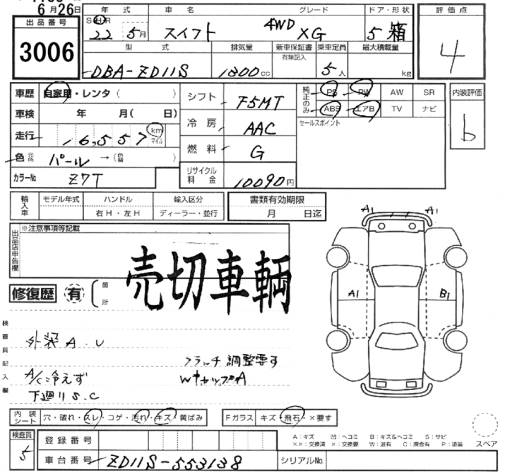 6月26日
出品番号
3006
年式 車名 グレード ドア・形状
22年 5月 スイフト 4WD XG 5 箱
型式 排気量 新車保証書 乗車定員 最大積載量
有除記入
DBA-ZD11S 1300cc 5人 kg
評価点
4
車歴 自家用・レンタ( )
車検 年 月( 日)
走行 16,557 km マイル
色 パール →( )
カラーNo Z7T
シフト F5MT
冷房 AAC
燃料 G
リサイクル料金 10090円
純正のみ PS PW AW SR
ABS エアB TV ナビ
セールスポイント
内装評価
b
輸入車 モデル年式 ハンドル 輸入区分
右H・左H ディーラー・並行
書類有効期限
月 日迄
※注意事項等記載
売切車輌
修復歴 有 箇所
検査員記入欄
外装A.U
A/C冷えず
下廻りS.C
クラッチ調整要す
WキャップA
A1 A1
A1 B1
内装シート 穴・破れ・スレ・コゲ・汚れ・キズ・黄ばみ
Fガラス キズ・飛石・×要す
検査員 5
登録番号
車台番号 ZD11S-553138
シリアルNo.
A:キズ U:ヘコミ B:キズ&ヘコミ S:サビ
スペア